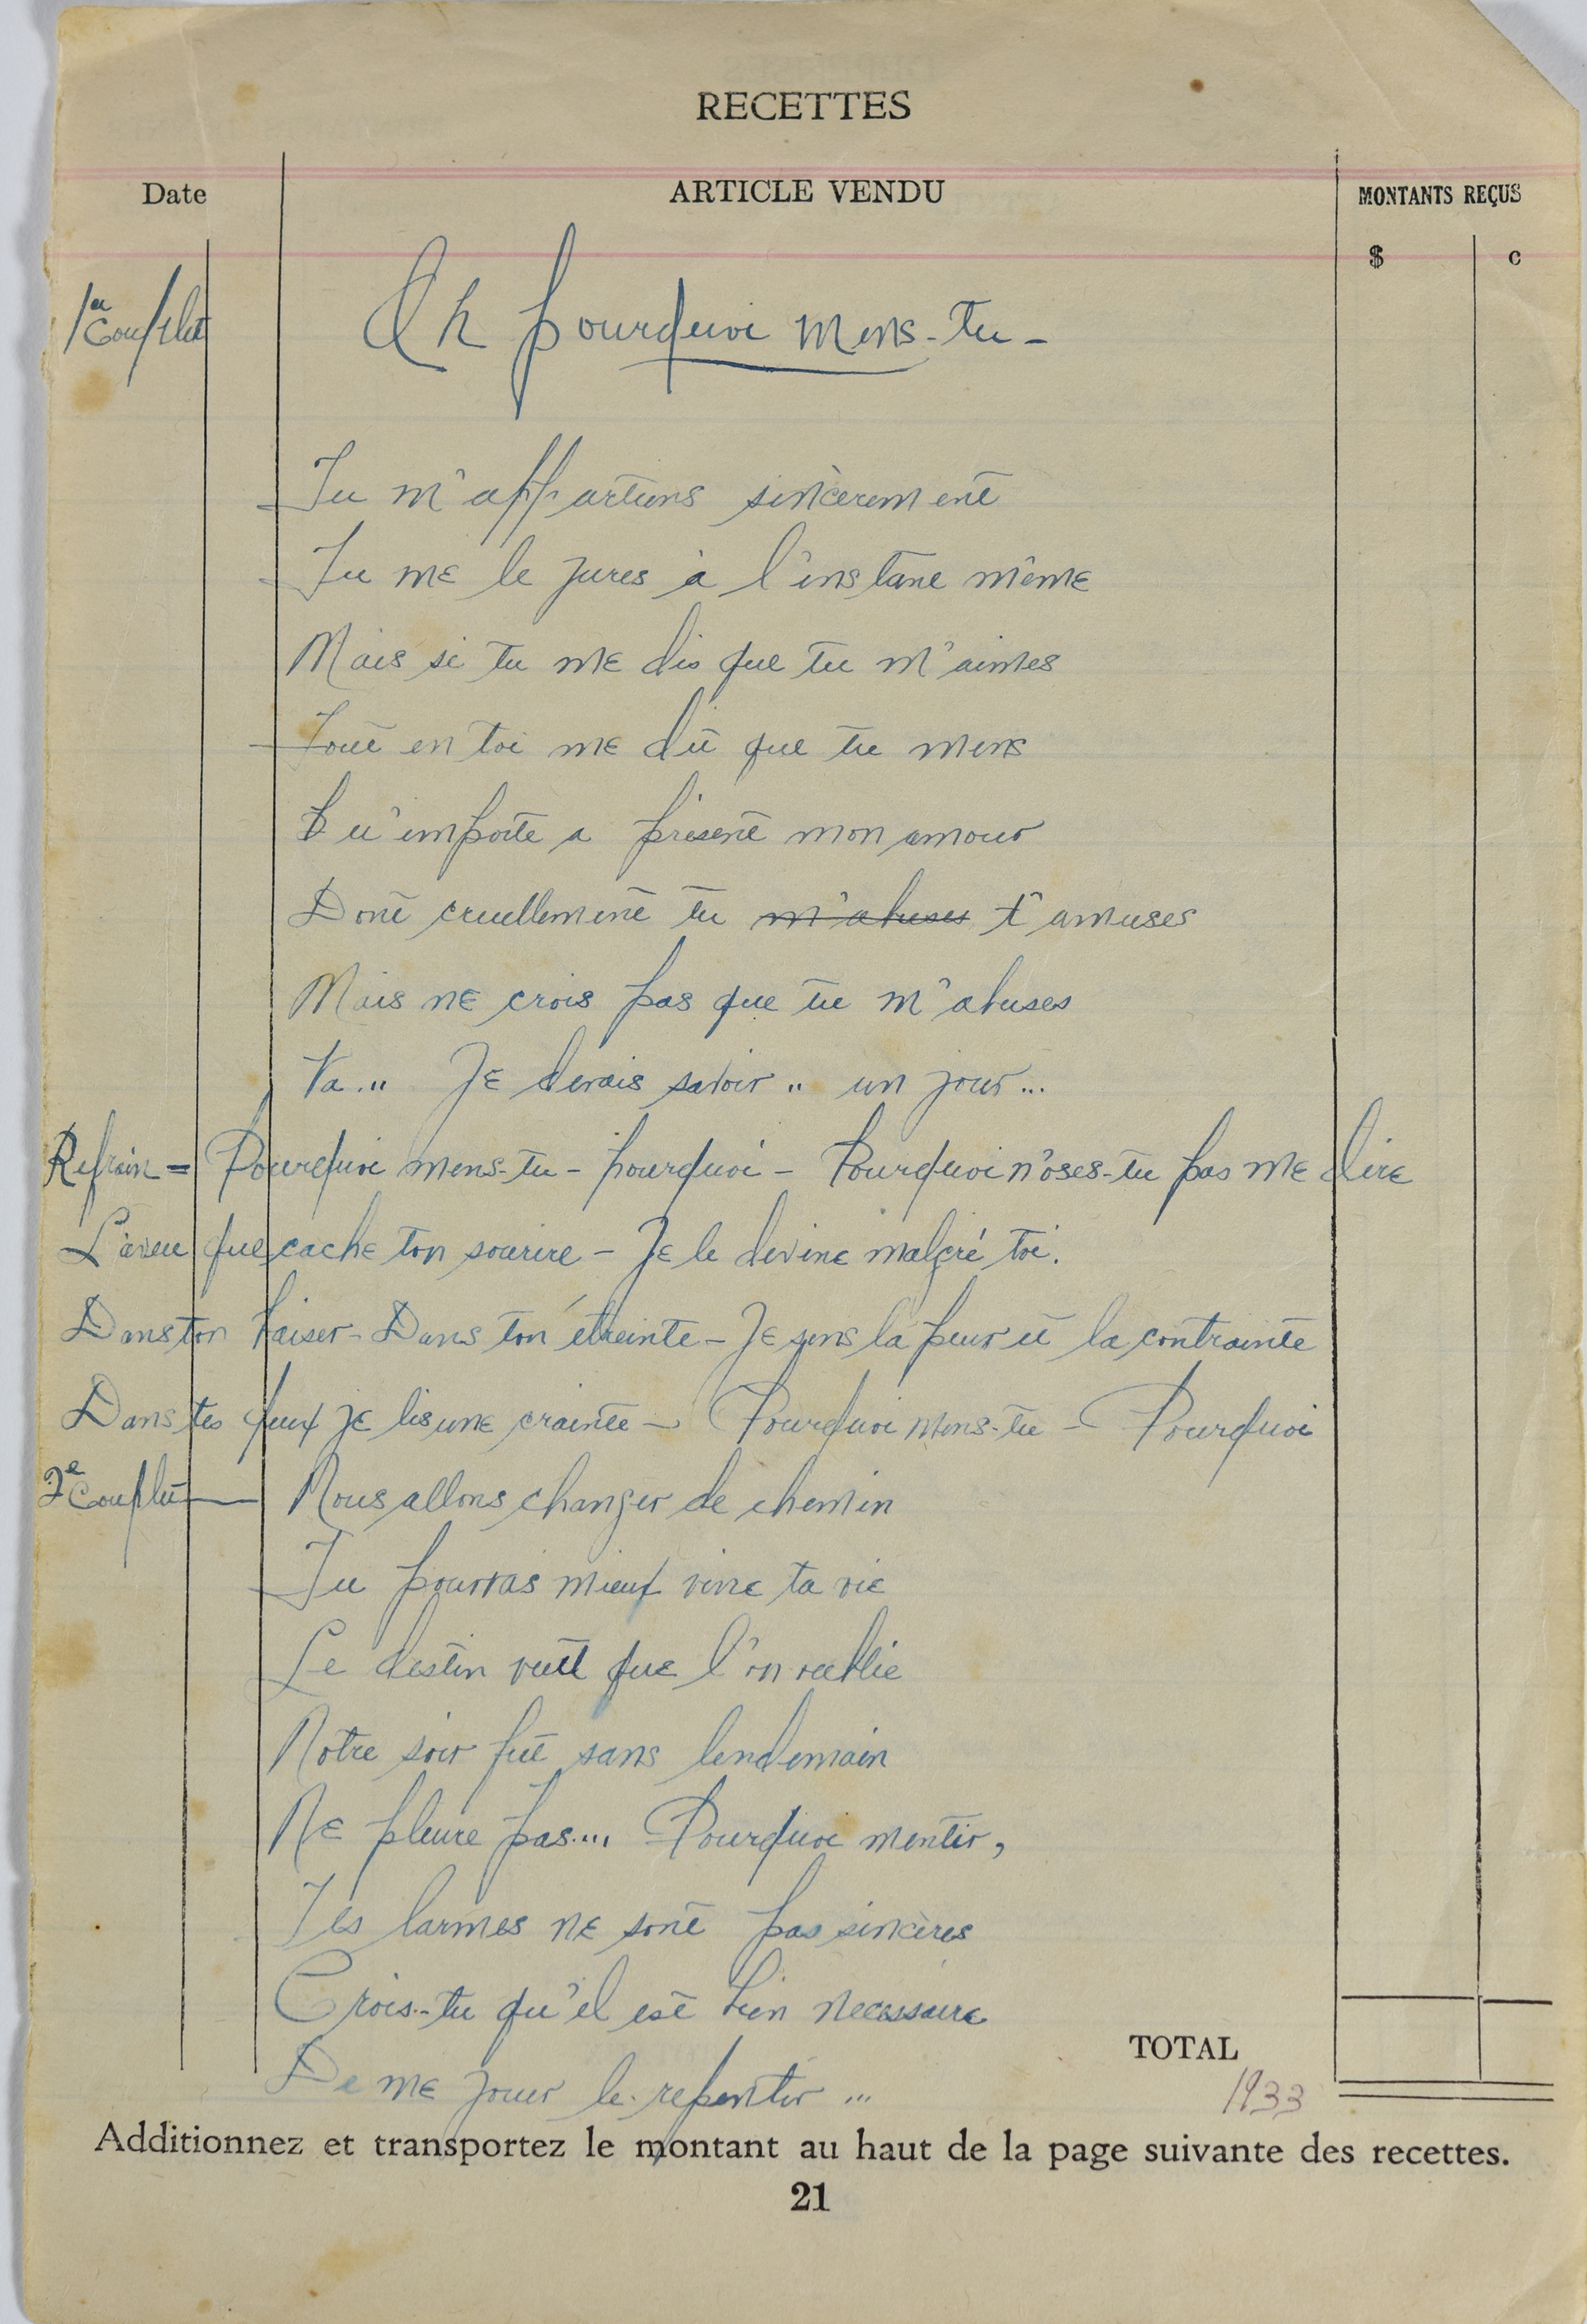 RECETTES
Date ARTICLE VENDU MONTANTS REÇUS
$ c
1er Couplet Ah pourquoi mens-tu -
Tu m'appartiens sincèrement
Tu me le jures à l'instant même
Mais si tu me dis que tu m'aimes
Tout en toi me dit que tu mens
Qu'importe a présent mon amour
Dont cruellement tu m'abuses t'amuses
Mais ne crois pas que tu m'abuses
Va... Je devais savoir .. un jour...
Refrain = Pourquoi mens-tu - pourquoi - Pourquoi n'oses-tu pas me dire
L'aveu que cache ton sourire - Je le devine malgré toi.
Dans ton baiser - Dans ton étreinte - Je sens la peur et la contrainte
Dans tes yeux je lis une crainte - Pourquoi mens-tu - Pourquoi
2e Couplet — Nous allons changer de chemin
Tu pourras mieux vivre ta vie
Le destin veut que l'on oublie
Notre soir fut sans lendemain
Ne pleure pas... Pourquoi mentir,
Tes larmes ne sont pas sincères
Crois-tu qu'il est bien necessaire
De me jouer le repentir ...
TOTAL
1933
Additionnez et transportez le montant au haut de la page suivante des recettes.
21